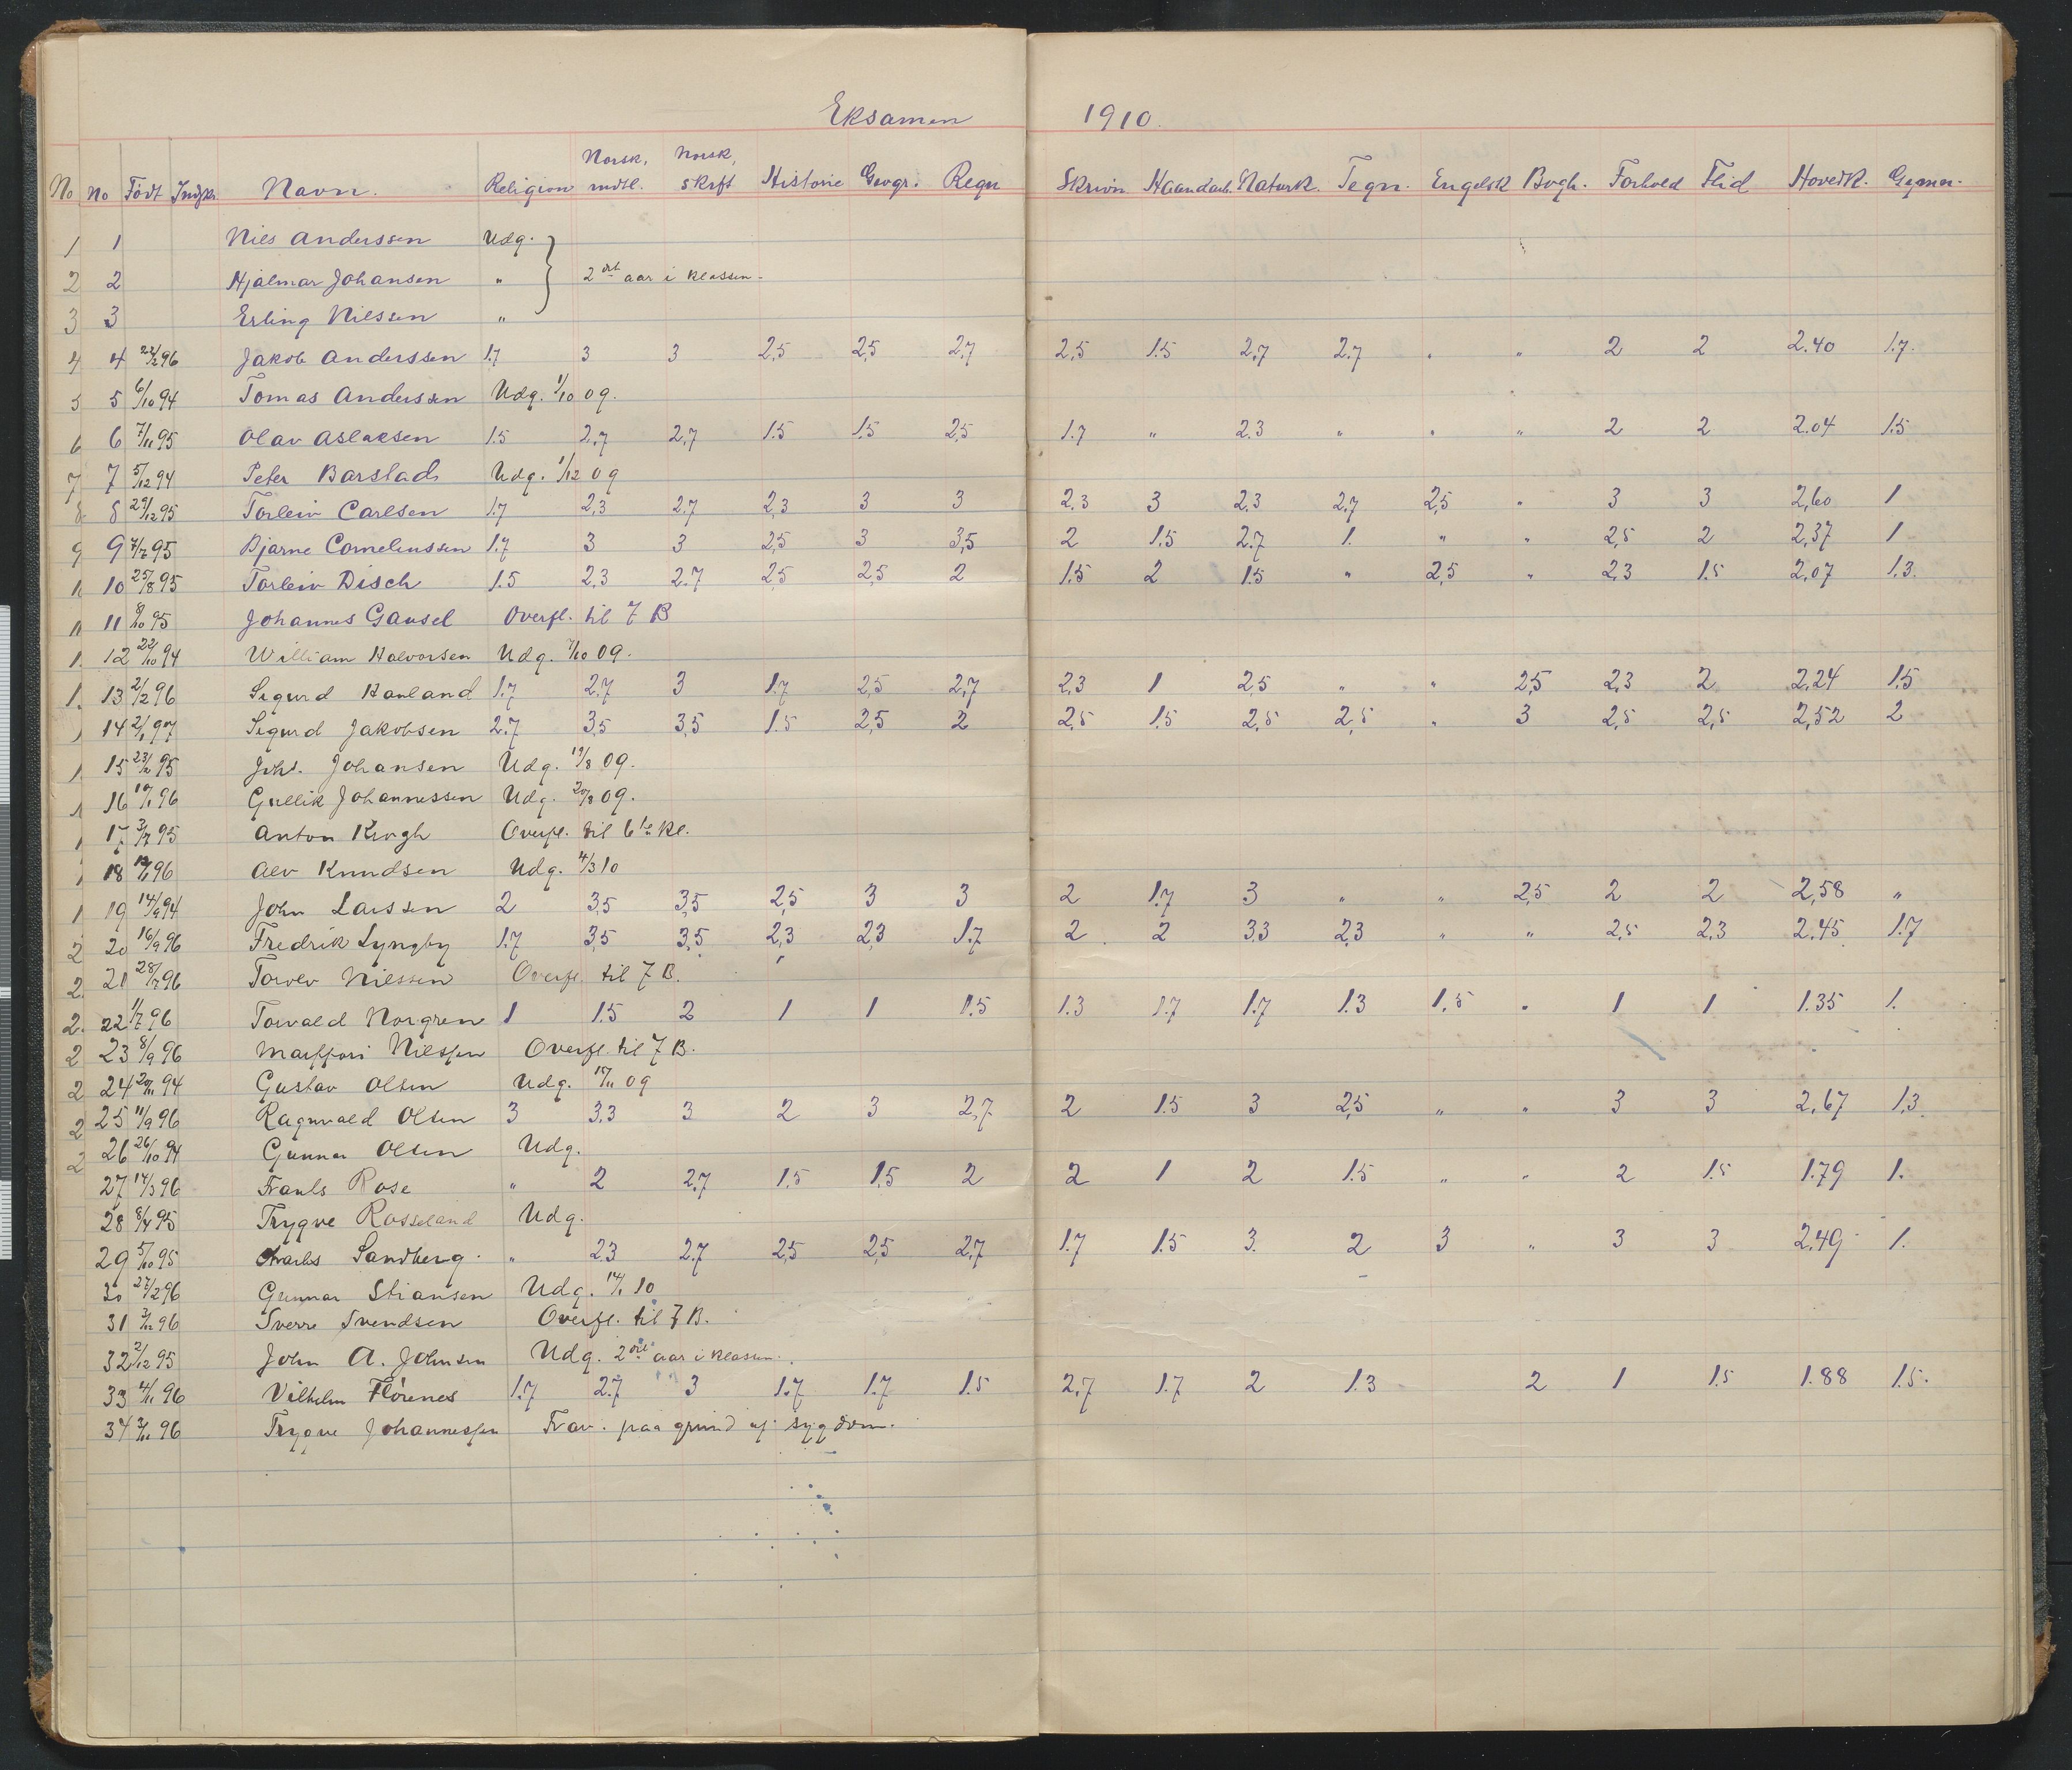 Eksamen 1910.
No No Født Indskr. Navn. Religion Norsk, mdtl. Norsk, skrft Historie Geogr. Regn Skrivn Haandarb. Naturk. Tegn. Engelsk Bogh. Forhold Flid Hovedk. Gymn.
1 1 Nils Anderssen Udg.
2 2 Hjalmar Johansen " 2det aar i klassen.
3 3 Erling Nilssen "
4 4 22/2 96 Jakob Anderssen 1.7 3 3 2,5 2,5 2,7 2,5 1.5 2,7 2.7 " " 2 2 2.40 1.7.
5 5 6/10 94 Tomas Anderssen Udg. 1/10 09.
6 6 7/11 95 Olav Aslaksen 1.5 2,7 2,7 1.5 1.5 2,5 1.7 " 2.3 " " " 2 2 2.04 1.5
7 7 5/12 94 Peter Barstad Udg. 1/12 09
8 8 29/12 95 Torleiv Carlsen 1.7 2,3 2.7 2,3 3 3 2,3 3 2.3 2,7 2,5 " 3 3 2,60 1
9 9 7/7 95 Bjarne Corneliussen 1.7 3 3 2,5 3 3,5 2 1.5 2.7 1. " " 2,5 2 2,37 1
10 25/8 95 Torleiv Disch 1.5 2,3 2.7 2,5 2,5 2 1.5 2 1.5 " 2,5 " 2,3 1.5 2,07 1.3.
11 8/10 95 Johannes Gausel Overfl. til 7 B
12 22/10 94 William Halvorsen Udg. 7/10 09.
13 2/2 96 Sigurd Hauland 1.7 2.7 3 1.7 2,5 2,7 2,3 1 2,5 " " 2,5 2,3 2 2,24 1.5
14 Sigurd Jakobsen 2.7 3,5 3,5 1.5 2,5 2 2,5 1.5 2,5 2,5 " 3 2,5 2,5 2,52 2
15 95 Johs. Johansen Udg. 19/8 09.
16 96 Gullik Johannessen Udg. 20/8 09.
17 3/7 95 Anton Krogh Overfl. til 6te kl.
18 96 Alv Knudsen Udg. 4/3 10
19 14/9 94 John Larssen 2 3,5 3,5 2,5 3 3 2 1.7 3 " " 2,5 2 2 2,58 "
20 16/9 96 Fredrik Lyngby 1.7 3,5 3,5 2,3 2,3 1.7 2 2 3.3 2,3 " " 2,5 2.3 2.45 1.7
21 28/7 96 Torlev Nilssen Overfl. til 7 B.
22 1/7 96 Torvald Norgren 1 1.5 2 1 1 1.5 1.3 1.7 1.7 1.3 1,5 " 1 1 1.35 1.
23 8/9 96 Nilssen Overfl. til 7 B.
24 94 Gustav Olsen Udg. 09
25 11/9 96 Ragnvald Olsen 3 3.3 3 2 3 2,7 2 1.5 3 2,5 " " 3 3 2,67 1,3
26 26/10 94 Gunnar Olsen Udg.
27 14/3 96 Frants Rose " 2 2,7 1,5 1,5 2 2 1 2 1.5 " " 2 1.5 1.79 1.
28 8/4 95 Trygve Rosseland Udg.
29 5/10 95 Charles Sandberg. " 2.3 2.7 2,5 2,5 2,7 1.7 1.5 3. 2 3 " 3 3 2.49 1.
30 27/2 96 Gunnar Stiansen Udg. 14/1 10
31 96 Sverre Svendsen Overfl. til 7 B.
32 2/12 95 John A. Johnsen Udg. 2det aar i klassen.
33 4/11 96 Vilhelm Flörenes 1.7 2.7 3 1.7 1.7 1.5 2,7 1.7 2 1.3 2 1 1.5 1.88 1.5.
34 96 Trygve Johannessen Frav. paa grund af sygdom.